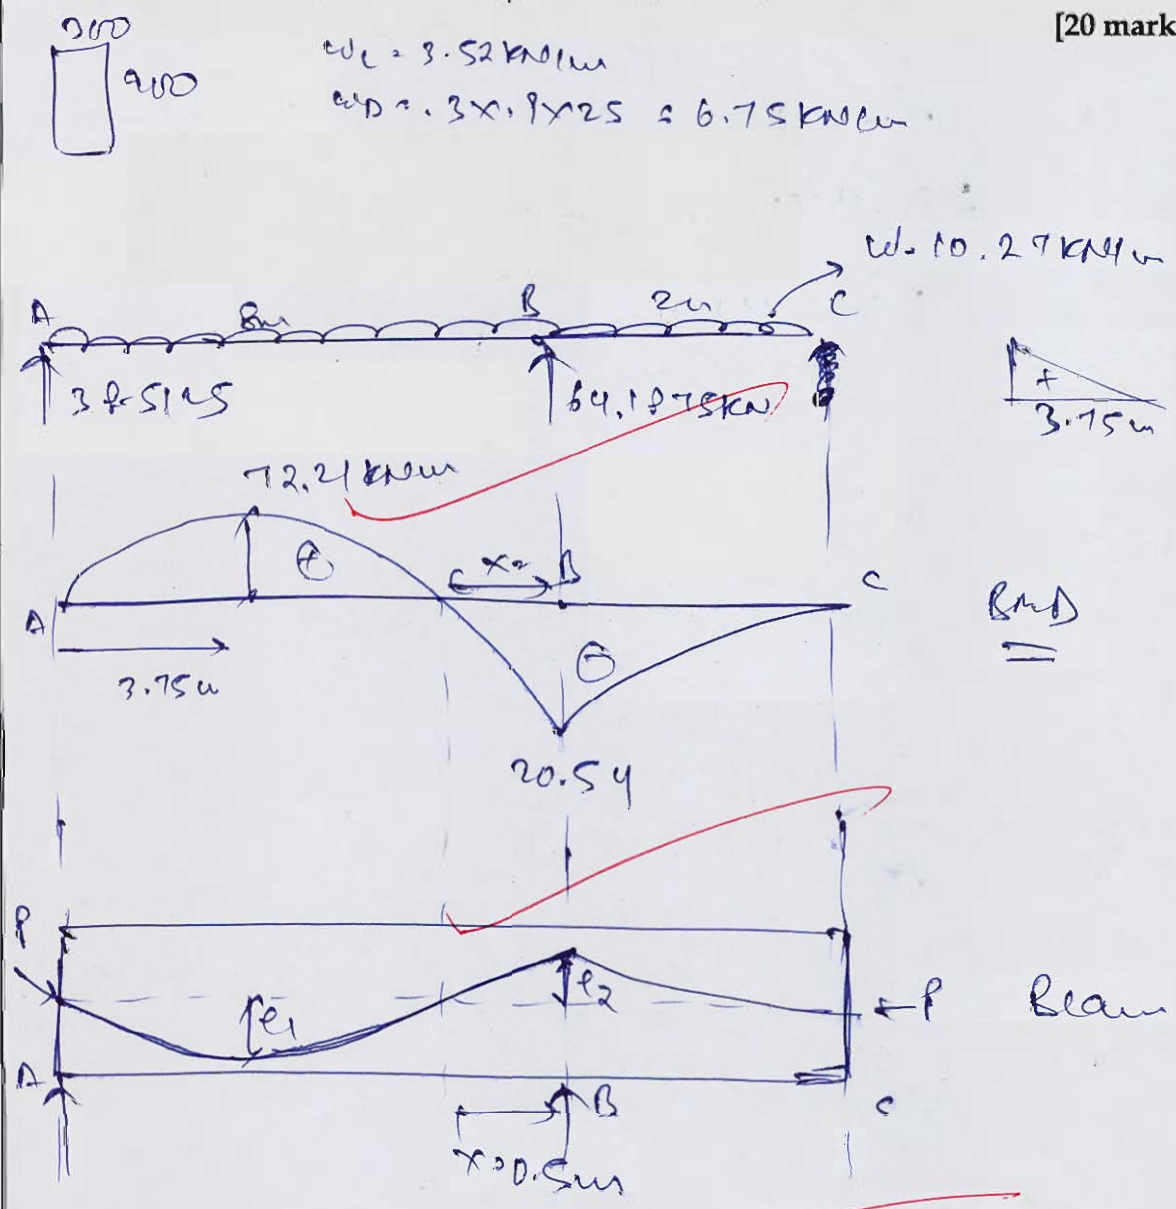 [20 mark
300
900
wL = 3.52 kN/m
wD = .3x.9x25 = 6.75 kN/m
w = 10.27 kN/m
A 8m B 2m C
38.5125
64.1875 kN
+
3.75m
72.21 kNm
+
x=
B
C
A
BMD
3.75m
-
20.54
P
e1
e2
P
Beam
A
B
C
x=0.5m